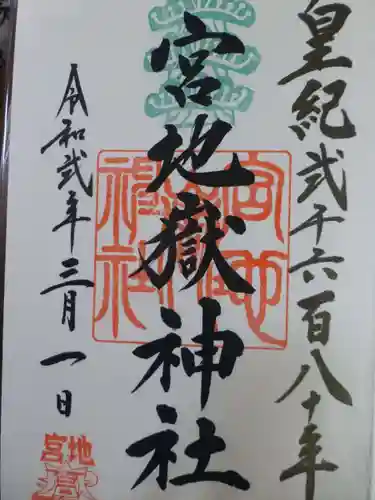 皇紀弐千六百八十年
宮地嶽神社
令和弐年三月一日
宮地